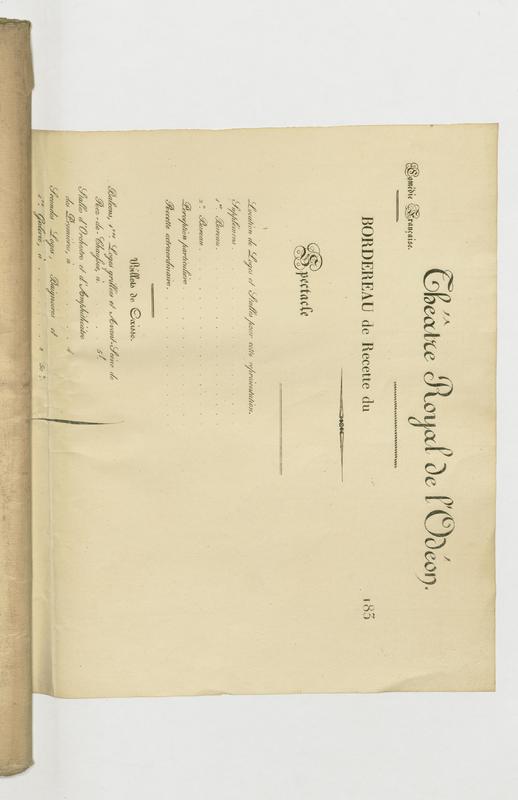 Comédie Française.
Théâtre Royal de l'Odéon.
BORDEREAU de Recette du 183
Spectacle
Location de Loges et Stalles pour cette représentation.
Supplémens
1er Bureau.
2e Bureau.
Perception particulière
Recette extraordinaire.
Billets de Caisse.
Balcons, 1res Loges grillées et Avant-Scène de
Rez-de-Chaussée, à 5f.
Stalles d'Orchestre et d'Amphithéâtre
des Premières, à 4
Secondes Loges, Baignoires et
1res Galeries, à 2 50c